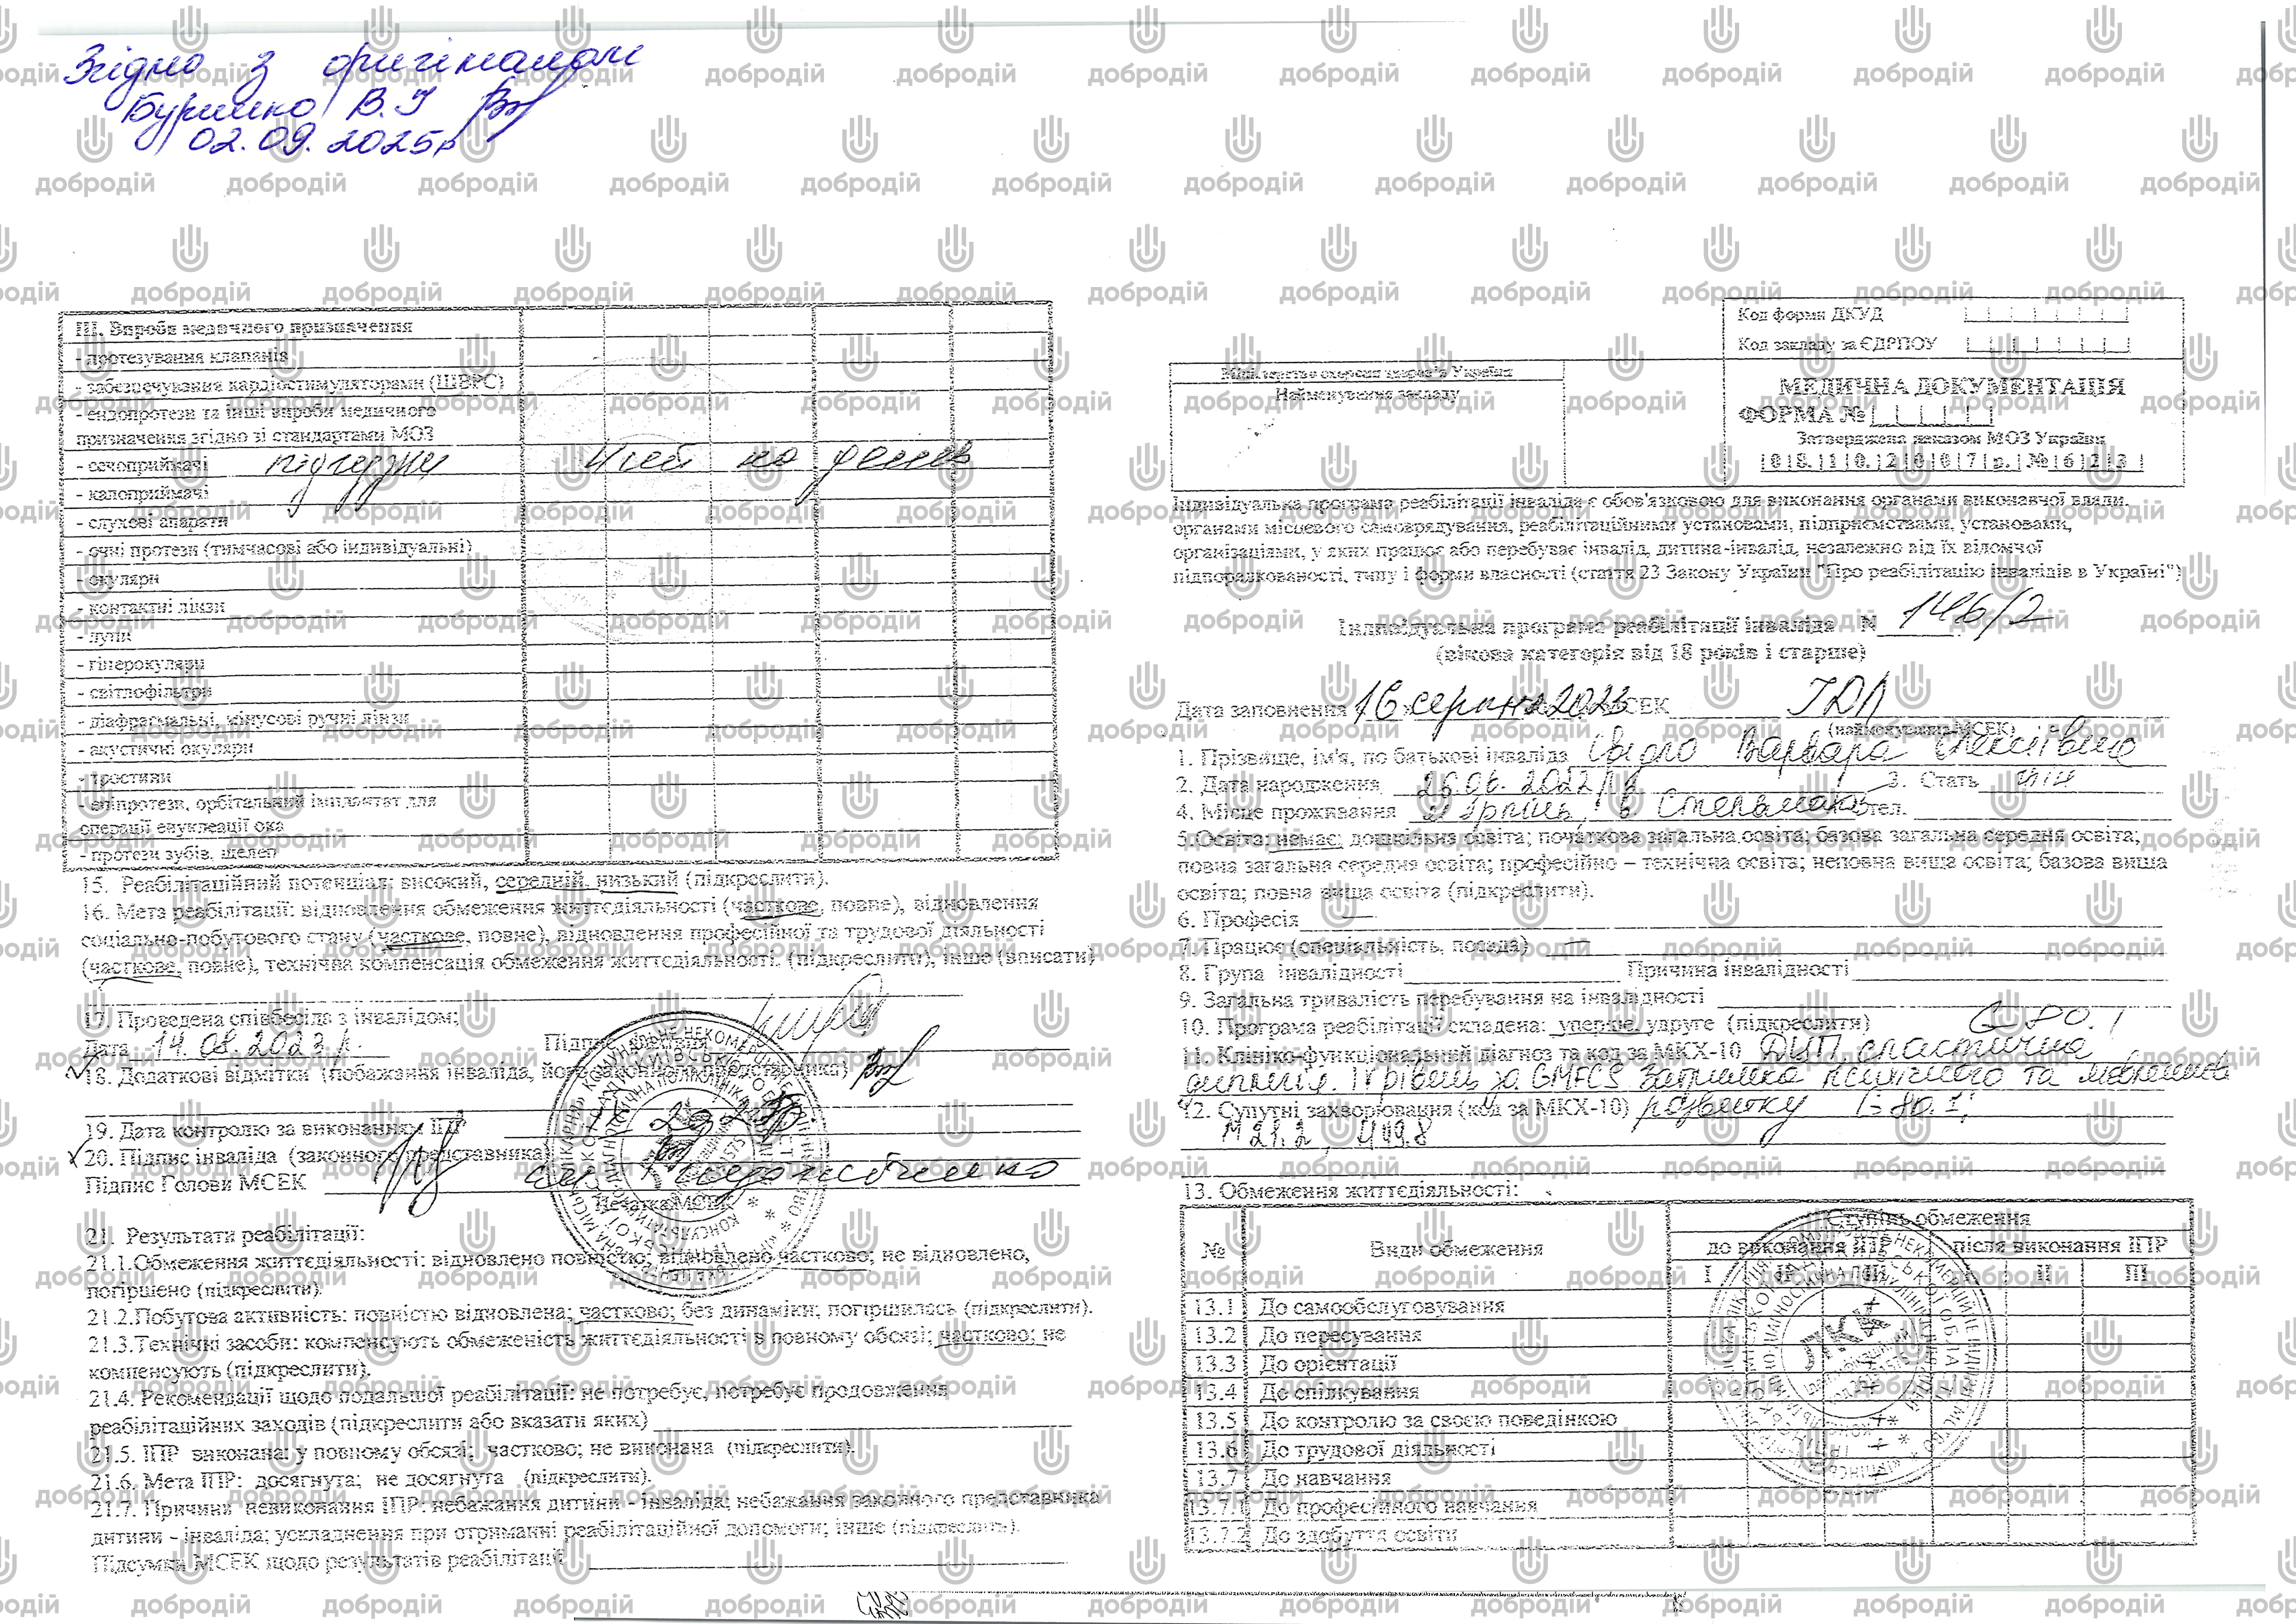 Згідно з оригіналом
Буришко В.І
02.09.2025р
III. Вироби медичного призначення
- протезування клапанів
- забезпечування кардіостимуляторами (ШВРС)
- ендопротези та інші вироби медичного
призначення згідно зі стандартами МОЗ
- сечоприймачі підгузки 4 шт на день
- калоприймачі
- слухові апарати
- очні протези (тимчасові або індивідуальні)
- окуляри
- контактні лінзи
- лупи
- гіперокуляри
- світлофільтри
- діафрагмальні, конусові ручні лінзи
- акустичні окуляри
- тростини
- епіпротези, орбітальний імплантат для
операції енуклеації ока
- протези зубів, щелеп
15. Реабілітаційний потенціал: високий, середній, низький (підкреслити).
16. Мета реабілітації: відновлення обмеження життєдіяльності (часткове, повне), відновлення
соціально-побутового стану (часткове, повне), відновлення професійної та трудової діяльності
(часткове, повне), технічна компенсація обмеження життєдіяльності. (підкреслити), інше (вписати)
17. Проведена співбесіда з інвалідом;
Дата 14.08.2023 р. Підпис
18. Додаткові відмітки (побажання інваліда, його законного представника)
19. Дата контролю за виконанням ІПР
20. Підпис інваліда (законного представника)
Підпис Голови МСЕК
Печатка МСЕК
21. Результати реабілітації:
21.1.Обмеження життєдіяльності: відновлено повністю; відновлено частково; не відновлено,
погіршено (підкреслити).
21.2.Побутова активність: повністю відновлена; частково; без динаміки; погіршилась (підкреслити).
21.3.Технічні засоби: компенсують обмеженість життєдіяльності в повному обсязі; частково; не
компенсують (підкреслити).
21.4. Рекомендації щодо подальшої реабілітації: не потребує, потребує продовження
реабілітаційних заходів (підкреслити або вказати яких)
21.5. ІПР виконана: у повному обсязі; частково; не виконана (підкреслити).
21.6. Мета ІПР: досягнута; не досягнута (підкреслити).
21.7. Причини невиконання ІПР: небажання дитини - інваліда; небажання законного представника
дитини - інваліда; ускладнення при отриманні реабілітаційної допомоги; інше (підкреслить).
Підсумки МСЕК щодо результатів реабілітації
Код форми ДКУД
Код закладу за ЄДРПОУ
Міністерство охорони здоров'я України
Найменування закладу
МЕДИЧНА ДОКУМЕНТАЦІЯ
ФОРМА №
Затверджена наказом МОЗ України
08.10.2007р. № 623
Індивідуальна програма реабілітації інваліда є обов'язковою для виконання органами виконавчої влади,
органами місцевого самоврядування, реабілітаційними установами, підприємствами, установами,
організаціями, у яких працює або перебуває інвалід, дитина-інвалід, незалежно від їх відомчої
підпорядкованості, типу і форми власності (стаття 23 Закону України "Про реабілітацію інвалідів в Україні")
Індивідуальна програма реабілітації інваліда N 146/2
(вікова категорія від 18 років і старше)
Дата заповнення 16 серпня 2023 МСЕК
(найменування МСЕК)
1. Прізвище, ім'я, по батькові інваліда Варвара Олексіївна
2. Дата народження 26.06.2022 р 3. Стать жін
4. Місце проживання м Ірпінь, тел.
5.Освіта: немає; дошкільна освіта; початкова загальна освіта; базова загальна середня освіта;
повна загальна середня освіта; професійно – технічна освіта; неповна вища освіта; базова вища
освіта; повна вища освіта (підкреслити).
6. Професія —
7. Працює (спеціальність, посада) —
8. Група інвалідності Причина інвалідності
9. Загальна тривалість перебування на інвалідності
10. Програма реабілітації складена: уперше, удруге (підкреслити) G 80.1
11. Клініко-функціональний діагноз та код за МКХ-10 ДЦП спастична
диплегія. IV рівень за GMFCS Затримка психічного та мовленнєв
12. Супутні захворювання (код за МКХ-10) розвитку G 80.1;
M 21.2,
13. Обмеження життєдіяльності:
№ Види обмеження Ступінь обмеження
до виконання ІПР після виконання ІПР
I II III I II III
13.1 До самообслуговування
13.2 До пересування
13.3 До орієнтації
13.4 До спілкування
13.5 До контролю за своєю поведінкою
13.6 До трудової діяльності
13.7 До навчання
13.7.1 До професійного навчання
13.7.2 До здобуття освіти
добродій